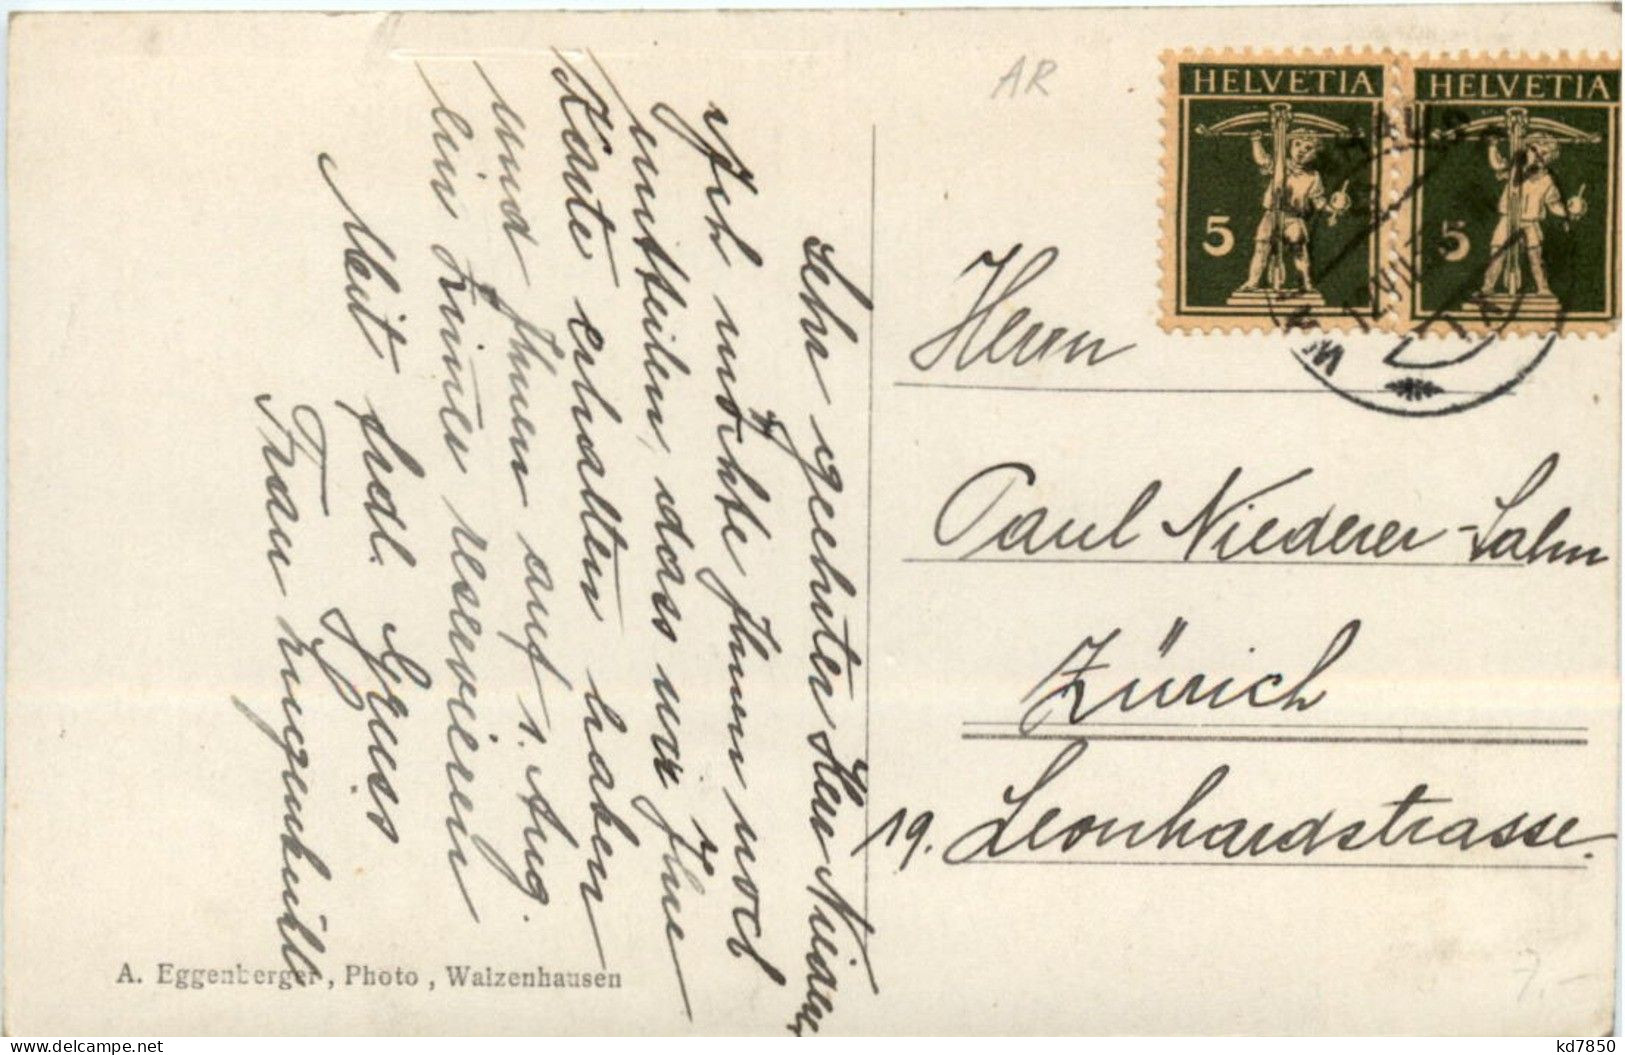 AR
HELVETIA HELVETIA
5 5
Sehr geehrter Herr
Ich möchte Ihnen noch
mitteilen, dass wir Ihre
Karte erhalten haben
und Ihnen auf 1. Aug.
ein Zimmer reservieren
Mit frdl. Gruss
Frau
Herrn
Paul Niederer-Sahm
Zürich
19. Leonhardstrasse.
A. Eggenberger, Photo, Walzenhausen
7.-
kd7850